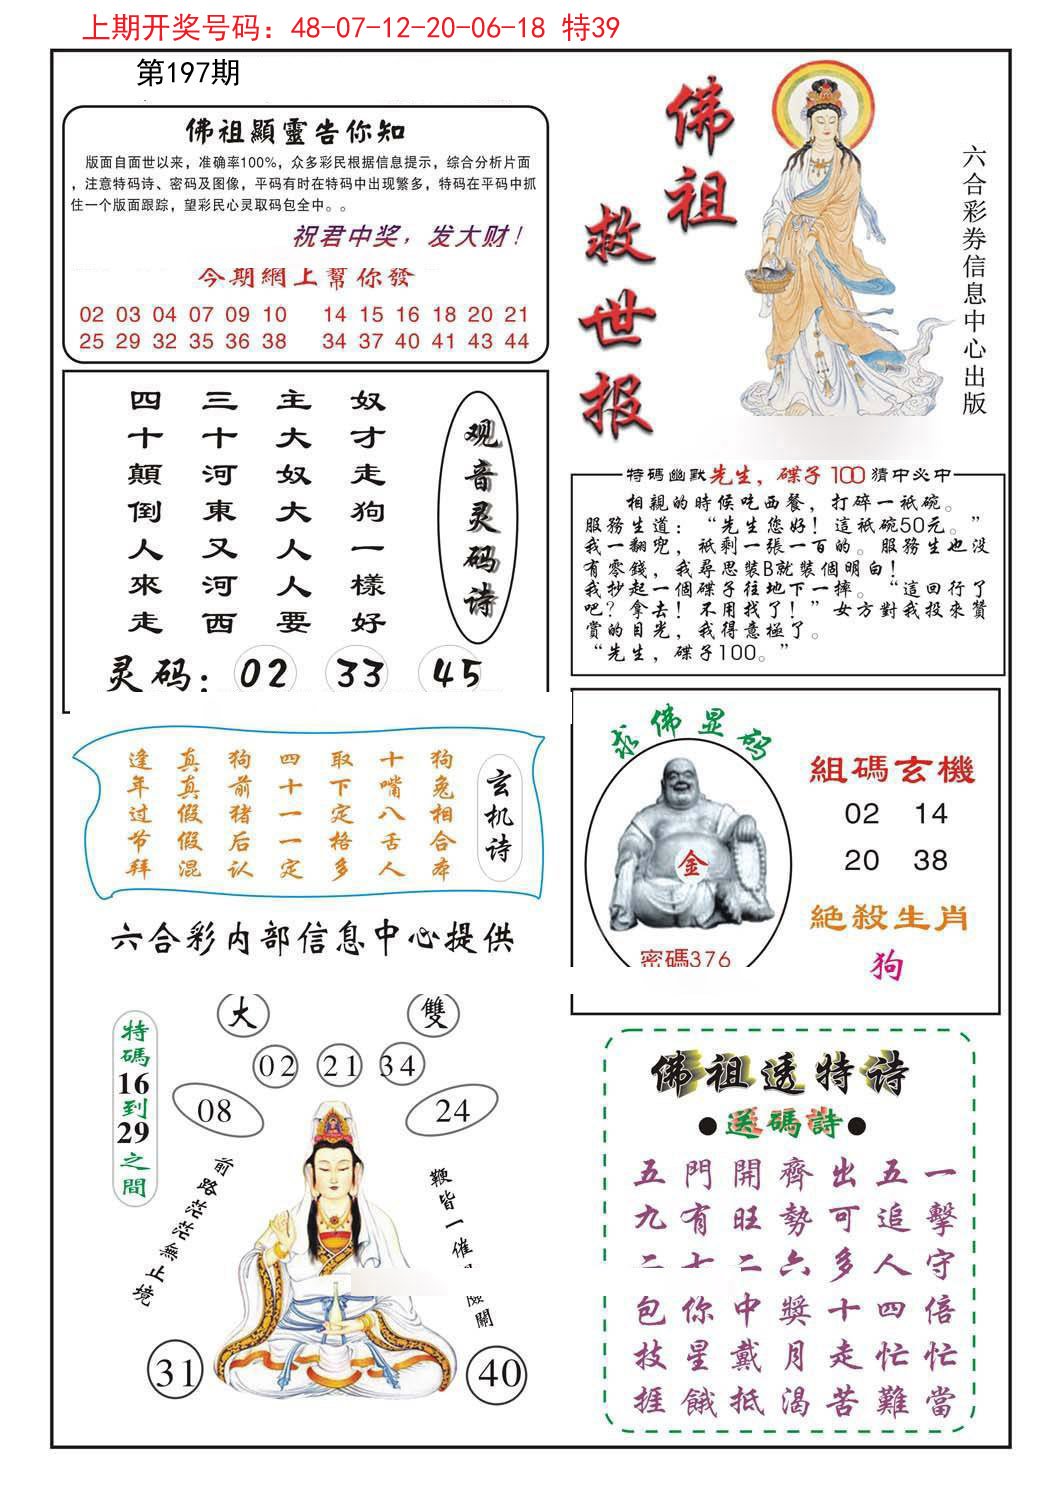 上期开奖号码：48-07-12-20-06-18 特39
第197期
佛祖顯靈告你知
版面自面世以来，准确率100%，众多彩民根据信息提示，综合分析片面
，注意特码诗、密码及图像，平码有时在特码中出现繁多，特码在平码中抓
住一个版面跟踪，望彩民心灵取码包全中。。
祝君中奖，发大财！
今期網上幫你發
02 03 04 07 09 10 14 15 16 18 20 21
25 29 32 35 36 38 34 37 40 41 43 44
佛祖
救世报
六合彩券信息中心出版
观音灵码诗
奴才走狗一樣好
主大奴大人人要
三十河東又河西
四十顛倒人來走
灵码：02 33 45
特碼幽默先生，碟子100猜中必中
相親的時候吃西餐，打碎一祇碗。
服務生道：“先生您好！這祇碗50元。”
我一翻兜，祇剩一張一百的。服務生也没
有零錢，我尋思裝B就裝個明白！
我抄起一個碟子往地下一摔。“這回行了
吧？拿去！不用找了！”女方對我投來贊
賞的目光，我得意極了。
“先生，碟子100。”
玄机诗
狗兔相合本
十嘴八舌人
取下定格多
四十一一定
狗前猪后认
真真假假混
逢年过节拜
六合彩内部信息中心提供
求佛显码
金
密碼376
組碼玄機
02 14
20 38
絕殺生肖
狗
特碼16到29之間
大 雙
02 21 34
08 24
前路茫茫無止境
鞭皆一催 關
31 40
佛祖透特诗
●送碼詩●
五門開齊出五一
九有旺勢可追擊
二十二六多人守
包你中獎十四倍
技星戴月走忙忙
捱餓抵渴苦難當